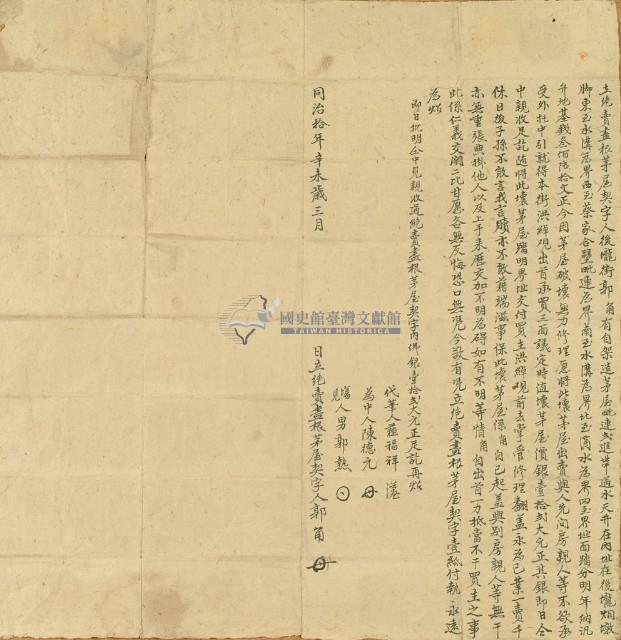 立絕賣盡根茅屋契字人後壠街郭角有自架造茅屋毗連弍進帶過水天井在內址在後壠烟墩
脚東至水溝為界西至蔡家合壁毗連為界南至水溝為界北至滴水為界四至界址面踏分明年納汎
弁地基錢叁佰陸拾文正今因茅屋破壞無力修理愿將此壞茅屋出賣與人先問房親人等不欲承
受外托中引就得本街洪綽觀出首承買三面議定時值壞茅屋價銀壹拾弍大元正其銀即日仝
中親收足訖隨將此壞茅屋踏明界址交付買主洪綽觀前去掌管修理翻蓋永為己業一賣千
休日後子孫不敢言找言贖亦不敢藉端滋事保此壞茅屋係角自己起蓋與別房親人等無干
亦無重張典掛他人以及上手來歷交加不明為碍如有不明等情角自出首一力抵當不干買主之事
此係仁義交關二比甘愿各無反悔恐口無凭今欲有凭立絕賣盡根茅屋契字壹紙付執永遠
為炤
即日批明仝中見親收過絕賣盡根茅屋契字內佛銀壹拾弍大元正足訖再炤
代筆人 福祥
為中人陳德元
塲見人男郭熱
同治拾年辛未歲三月 日立絕賣盡根茅屋契字人郭角
國史館臺灣文獻館
TAIWAN HISTORICA